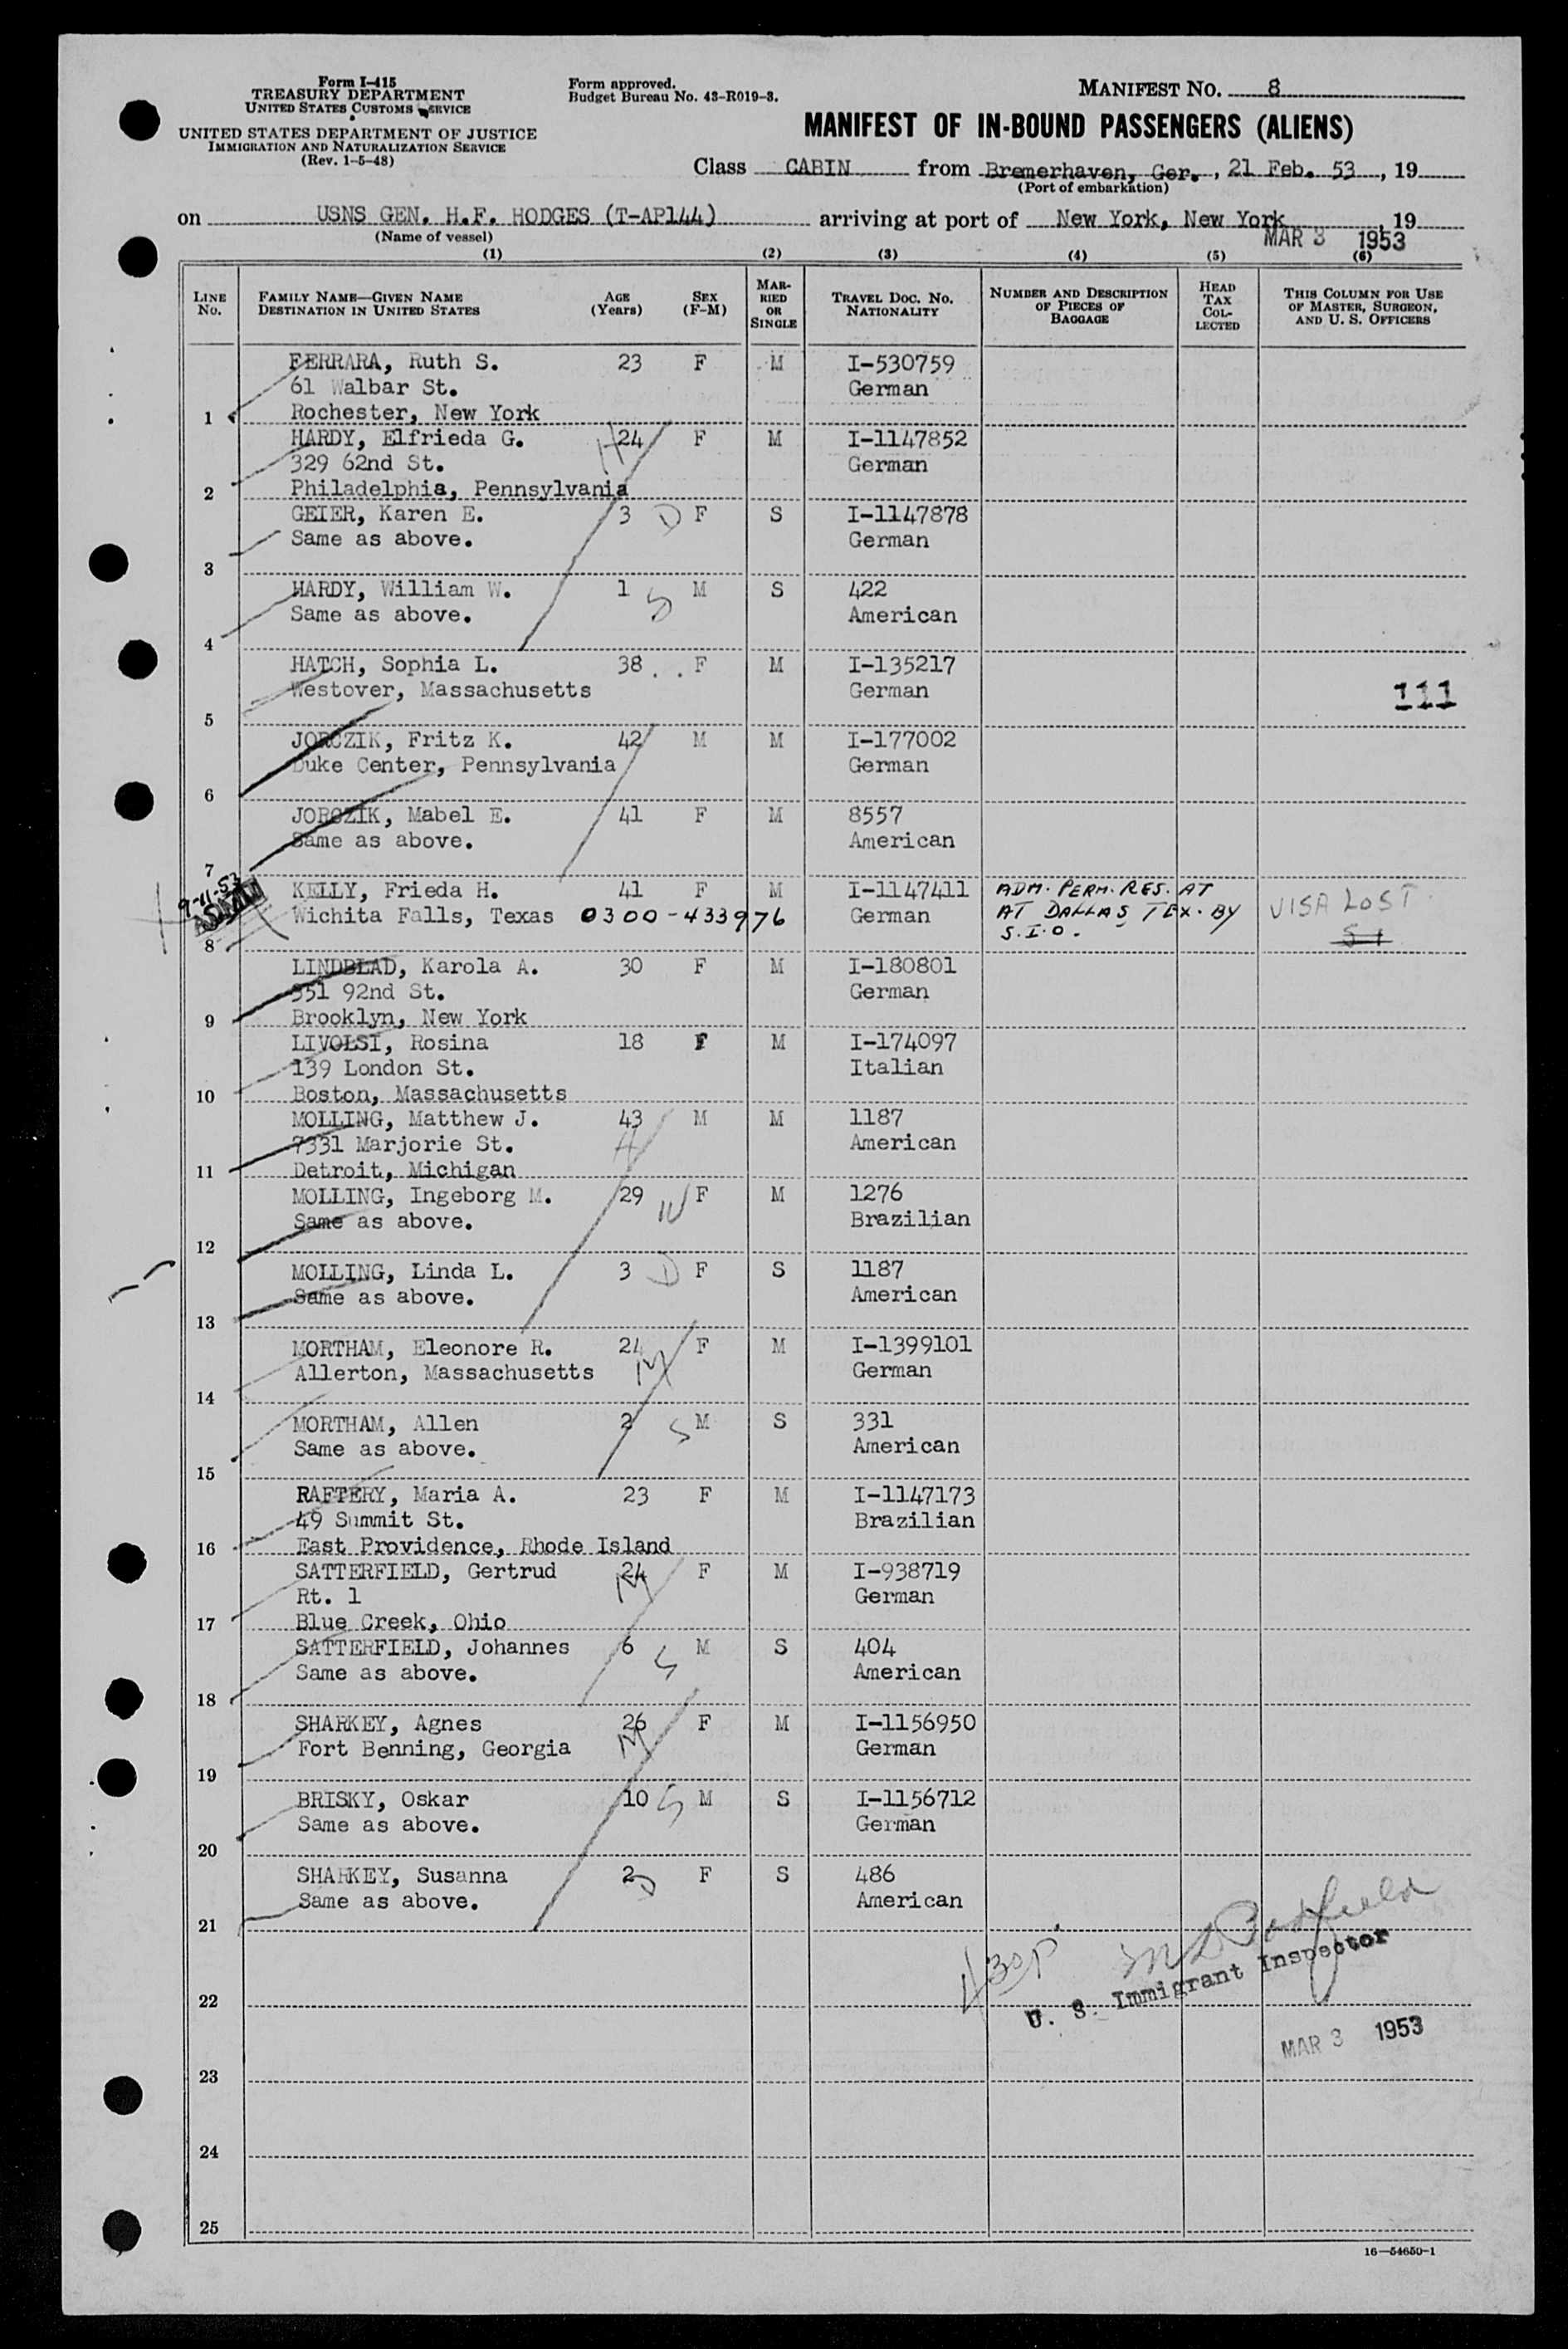 Form I-415
TREASURY DEPARTMENT
UNITED STATES CUSTOMS SERVICE
UNITED STATES DEPARTMENT OF JUSTICE
IMMIGRATION AND NATURALIZATION SERVICE
(Rev. 1-5-48)
Form approved.
Budget Bureau No. 43-R019-3.
MANIFEST No. 8
MANIFEST OF IN-BOUND PASSENGERS (ALIENS)
Class CABIN from Bremerhaven, Ger., 21 Feb. 53, 19
(Port of embarkation)
on USNS GEN. H.F. HODGES (T-AP144) arriving at port of New York, New York, 19
(Name of vessel)
MAR 3 1953
(1) (2) (3) (4) (5) (6)
LINE No. FAMILY NAME—GIVEN NAME DESTINATION IN UNITED STATES AGE (Years) SEX (F-M) MARRIED OR SINGLE TRAVEL DOC. NO. NATIONALITY NUMBER AND DESCRIPTION OF PIECES OF BAGGAGE HEAD TAX COLLECTED THIS COLUMN FOR USE OF MASTER, SURGEON, AND U. S. OFFICERS
FERRARA, Ruth S. 23 F M I-530759
61 Walbar St. German
1 Rochester, New York
HARDY, Elfrieda G. 24 F M I-1147852
329 62nd St. German
2 Philadelphia, Pennsylvania
GEIER, Karen E. 3 D F S I-1147878
Same as above. German
3
HARDY, William W. 1 S M S 422
Same as above. American
4
HATCH, Sophia L. 38 F M I-135217
Westover, Massachusetts German 111
5
JORCZIK, Fritz K. 42 M M I-177002
Duke Center, Pennsylvania German
6
JORCZIK, Mabel E. 41 F M 8557
Same as above. American
7
9-11-53
KELLY, Frieda H. 41 F M I-1147411 ADM. PERM. RES. AT
Wichita Falls, Texas 0300-433976 German AT DALLAS, TEX. BY VISA LOST
8 S.I.O. SI
LINDBLAD, Karola A. 30 F M I-180801
351 92nd St. German
9 Brooklyn, New York
LIVOLSI, Rosina 18 F M I-174097
139 London St. Italian
10 Boston, Massachusetts
MOLLING, Matthew J. 43 M M 1187
7331 Marjorie St. H American
11 Detroit, Michigan
MOLLING, Ingeborg M. 29 W F M 1276
Same as above. Brazilian
12
MOLLING, Linda L. 3 D F S 1187
Same as above. American
13
MORTHAM, Eleonore R. 24 F M I-1399101
Allerton, Massachusetts M German
14
MORTHAM, Allen 2 S M S 331
Same as above. American
15
RAFTERY, Maria A. 23 F M I-1147173
49 Summit St. Brazilian
16 East Providence, Rhode Island
SATTERFIELD, Gertrud 24 F M I-938719
Rt. 1 M German
17 Blue Creek, Ohio
SATTERFIELD, Johannes 6 S M S 404
Same as above. American
18
SHARKEY, Agnes 26 F M I-1156950
Fort Benning, Georgia M German
19
BRISKY, Oskar 10 S M S I-1156712
Same as above. German
20
SHARKEY, Susanna 2 D F S 486
Same as above. American
21
430P
U. S. Immigrant Inspector
22
MAR 3 1953
23
24
25
16—54650-1